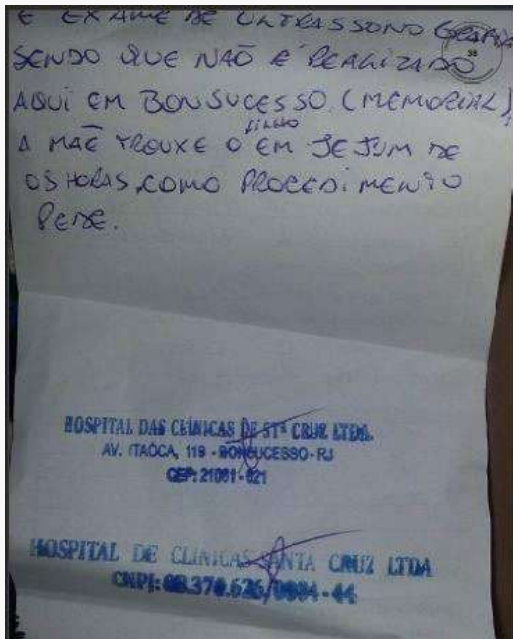 E EXAME DE ULTRASSONOGRAFIA
38
SENDO QUE NÃO É REALIZADO
AQUI EM BONSUCESSO. (MEMORIAL)
A MÃE TROUXE O filho EM JEJUM DE
08 HORAS, COMO PROCEDIMENTO
PEDE.
HOSPITAL DAS CLÍNICAS DE STª CRUZ LTDA.
AV. ITAÓCA, 119 - BONSUCESSO-RJ
CEP: 21061-021
HOSPITAL DE CLINICAS SANTA CRUZ LTDA